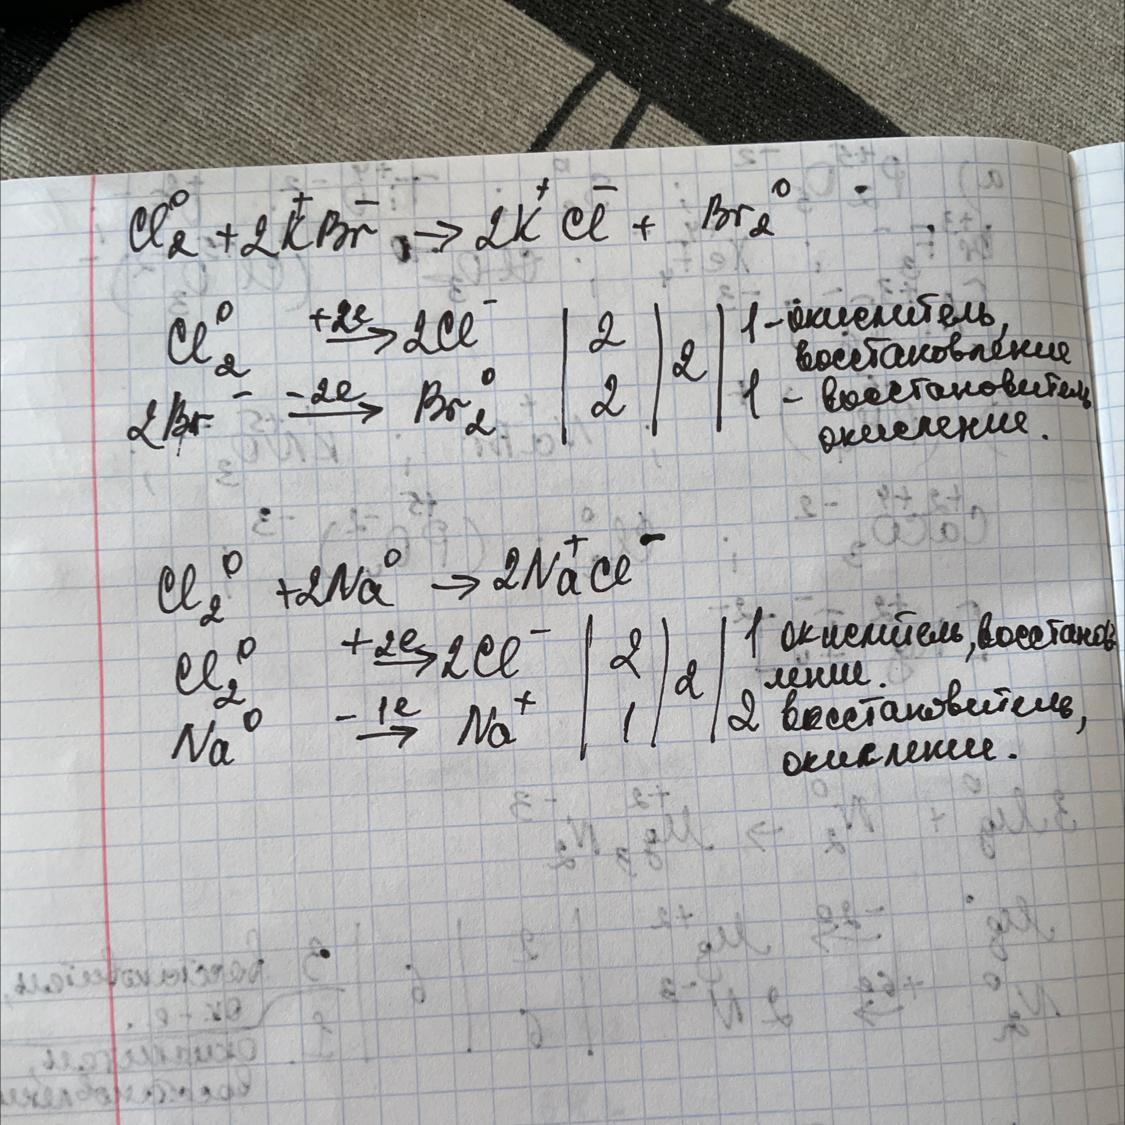 Cl₂⁰ + 2K⁺Br⁻ → 2K⁺Cl⁻ + Br₂⁰
Cl₂⁰ +2e → 2Cl⁻ | 2 | 2 | 1 - окислитель,
восстановление
2Br⁻ -2e → Br₂⁰ | 2 | | 1 - восстановитель
окисление.
Cl₂⁰ + 2Na⁰ → 2Na⁺Cl⁻
Cl₂⁰ +2e → 2Cl⁻ | 2 | 2 | 1 окислитель, восстанов
ление.
Na⁰ -1e → Na⁺ | 1 | | 2 восстановитель,
окисление.